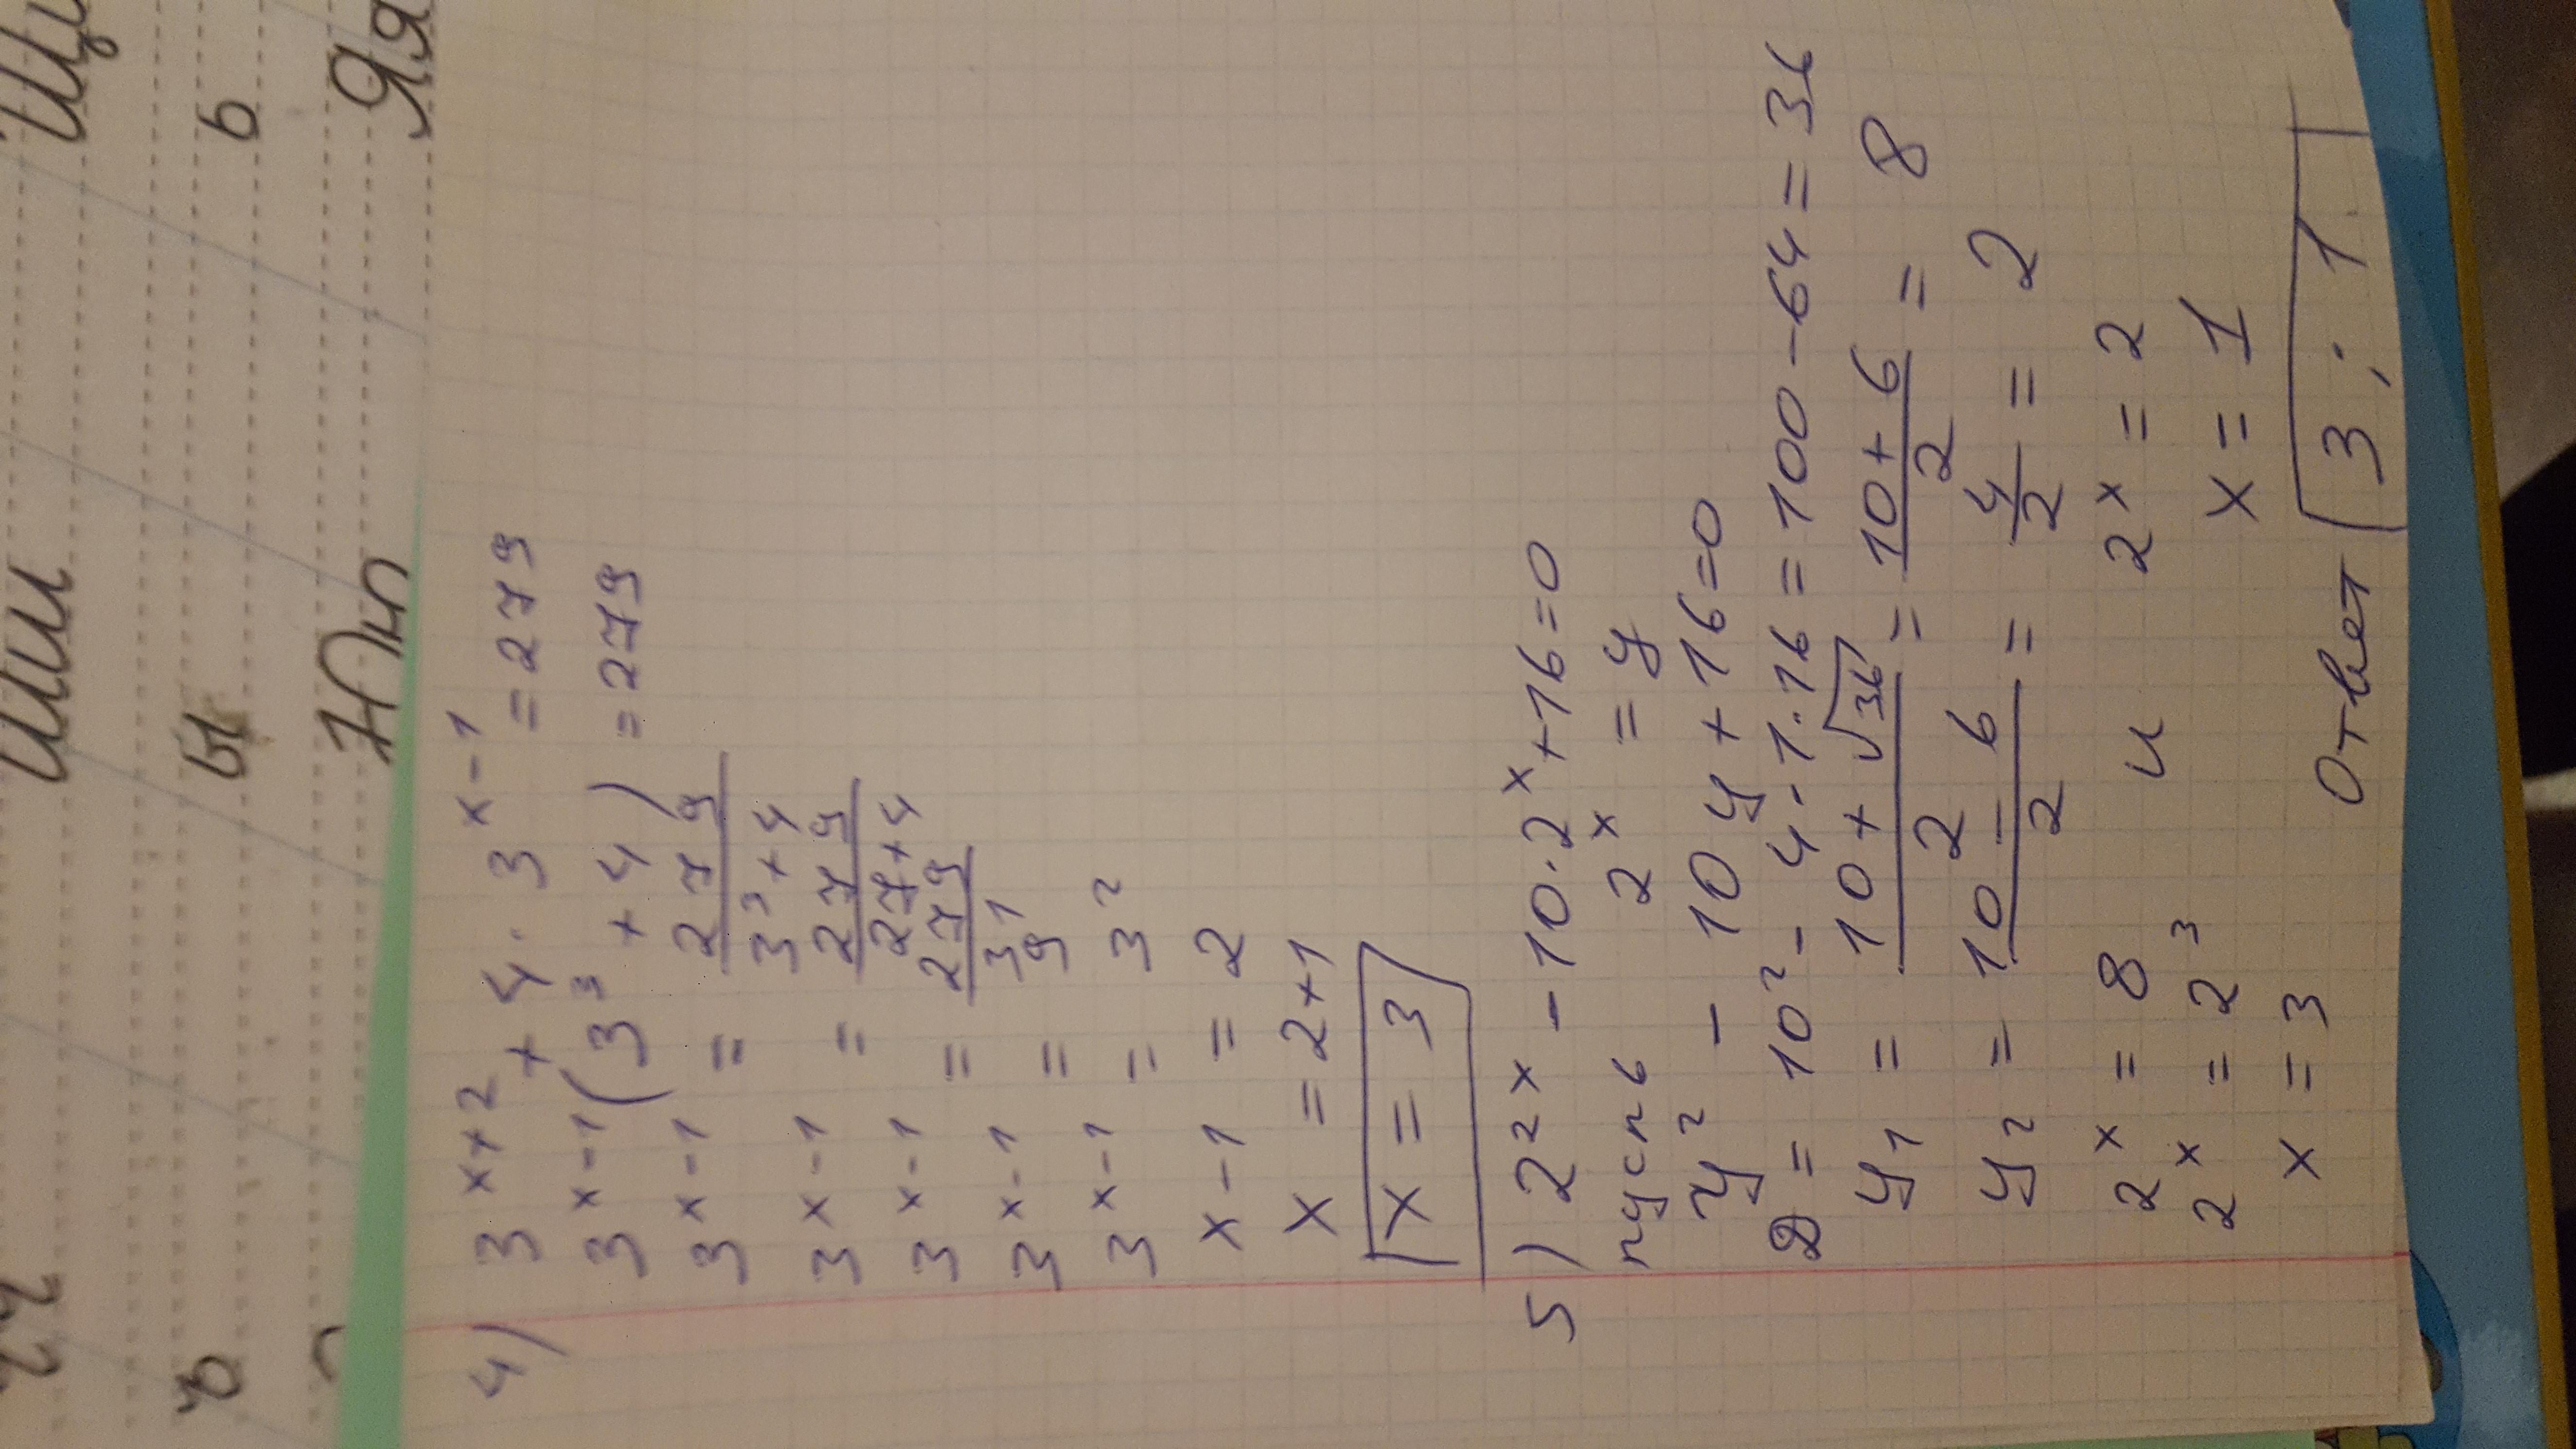 4) 3^{x+2} + 4 · 3^{x-1} = 279
3^{x-1} (3^3 + 4) = 279
3^{x-1} = \frac{279}{3^3+4}
3^{x-1} = \frac{279}{27+4}
3^{x-1} = \frac{279}{31}
3^{x-1} = 9
3^{x-1} = 3^2
x-1 = 2
x = 2+1
x = 3
5) 2^{2x} - 10·2^x + 16 = 0
пусть 2^x = y
y^2 - 10y + 16 = 0
D = 10^2 - 4·1·16 = 100 - 64 = 36
y_1 = \frac{10+\sqrt{36}}{2} = \frac{10+6}{2} = 8
y_2 = \frac{10-6}{2} = \frac{4}{2} = 2
2^x = 8 и 2^x = 2
2^x = 2^3 x = 1
x = 3
Ответ 3 ; 1